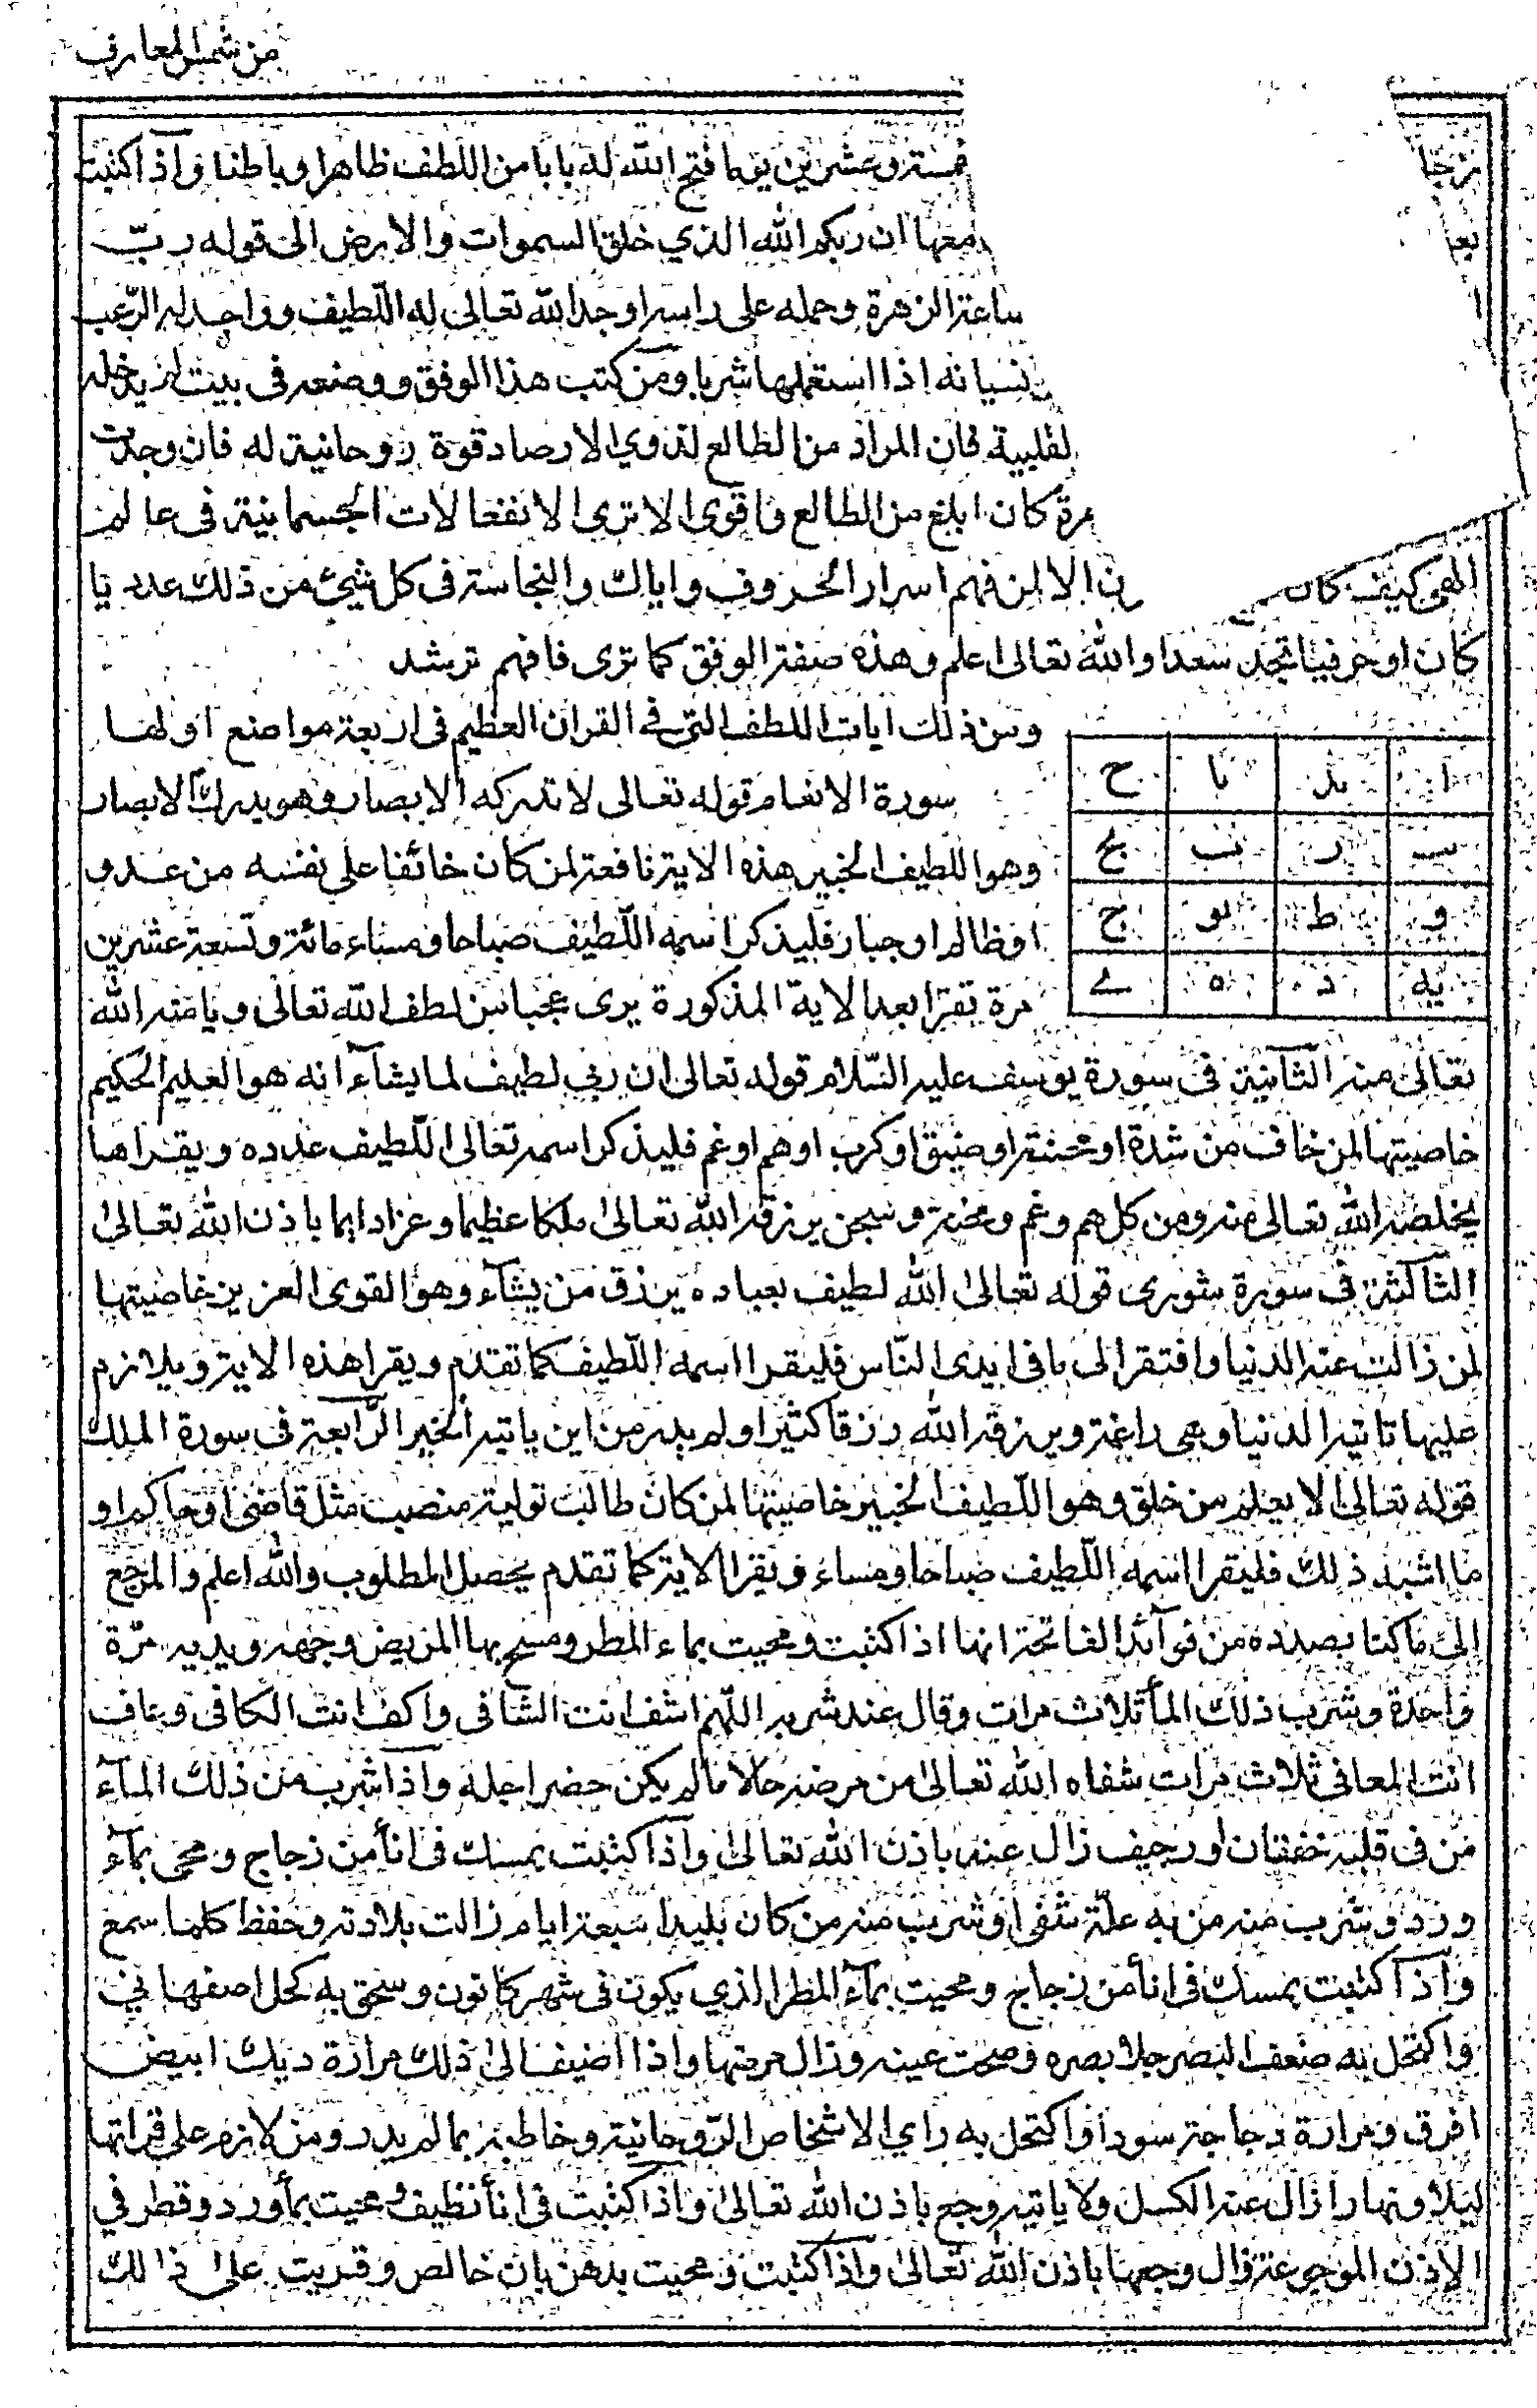 من شمس المعارف
خمسة وعشرين يوما فتح الله له بابا من اللطف ظاهرا وباطنا واذا كتبت
معها ان ربكم الله الذي خلق السموات والارض الى قوله ربّ
ساعة الزهرة وحمله على راسه اوجد الله تعالى له اللّطيف وواجد له الرّعب
نسيانه اذا استعملها شربا ومن كتب هذا الوفق ووضعه فى بيت لم يدخله
لقلبية فان المراد من الطالع لذوي الارصاد قوة روحانية له فان وجدت
مرة كان ابلغ من الطالع واقوى الا ترى الانفعالات الجسمانية فى عالم
الهى كيف كان ن الا لمن فهم اسرار الحروف واياك والنجاسة فى كل شيئ من ذلك عدديا
كان او حرفيا تجد سعدا والله تعالى اعلم وهذه صفة الوفق كما ترى فافهم ترشد
ومن ذلك ايات اللطف التى فى القران العظيم فى اربعة مواضع اولها
سورة الانعام قوله تعالى لا تدركه الابصار وهو يدرك الابصار
وهو اللطيف الخبير هذه الاية نافعة لمن كان خائفا على نفسه من عدو
او ظالم او جبار فليذكر اسمه اللّطيف صباحا ومساء مائة وتسعة عشرين
مرة تقرا بعد الاية المذكورة يرى عجبا من لطف الله تعالى ويامنه الله
ا يد يا ح
و ط يو ج
يه د ه ے
تعالى منه الثّانية فى سورة يوسف عليه السّلام قوله تعالى ان ربى لطيف لما يشآء انه هو العليم الحكيم
خاصيتها لمن خاف من شدة او محنة او ضيق او كرب او هم او غم فليذكر اسمه تعالى اللّطيف عدده ويقراها
يخلصه الله تعالى منه ومن كل هم وغم ومحنة وسجن يرزقه الله تعالى ملكا عظيما وعزا دايما باذن الله تعالى
الثّالثة فى سورة شورى قوله تعالى الله لطيف بعباده يرزق من يشآء وهو القوى العزيز خاصيتها
لمن زالت عنه الدنيا وافتقر الى ما فى ايدى النّاس فليقرا اسمه اللّطيف كما تقدم ويقرا هذه الاية ويلازم
عليها تاتيه الدنيا وهى راغمة ويرزقه الله رزقا كثيرا ولم يدر من اين ياتيه الخير الرّابعة فى سورة الملك
قوله تعالى الا يعلم من خلق وهو اللّطيف الخبير خاصيتها لمن كان طالب تولية منصب مثل قاضى او حاكم او
ما اشبه ذلك فليقرا اسمه اللّطيف صباحا ومساء ويقرا الاية كما تقدم يحصل المطلوب والله اعلم والمرجع
الى ما كنا بصدده من فوآئد الفاتحة انها اذا كتبت ومحيت بماء المطر ومسح بها المريض وجهه ويديه مرّة
واحدة وشرب ذلك المأ ثلاث مرات وقال عند شربه اللّهم اشف انت الشافى واكف انت الكافى وعاف
انت المعافى ثلاث مرات شفاه الله تعالى من مرضه حالا ما لم يكن حضر اجله واذا شرب من ذلك المآء
من فى قلبه خفقان او رجيف زال عنه باذن الله تعالى واذا كتبت بمسك فى انأ من زجاج ومحى بمآء
ورد وشرب منه من به علّة شفى او شرب منه من كان بليدا سبعة ايام زالت بلادته وحفظ كلما سمع
واذا كتبت بمسك فى انأ من زجاج ومحيت بمآء المطر الذي يكون فى شهر كانون وسحق به كحل اصفهاني
واكتحل به ضعف البصر جلا بصره وصحت عينه وزال مرضها واذا اضيف الى ذلك مرارة ديك ابيض
افرق ومرارة دجاجة سودا واكتحل به راي الاشخاص الرّوحانية وخاطبه بما لم يدر ومن لازم على قراتها
ليلا ونهارا زال عنه الكسل ولا ياتيه وجع باذن الله تعالى واذا كتبت فى انأ نظيف ومحيت بمأ ورد وقطر في
الاذن الموجوعة زال وجعها باذن الله تعالى واذا كتبت ومحيت بدهن بان خالص وقريت على ذالك